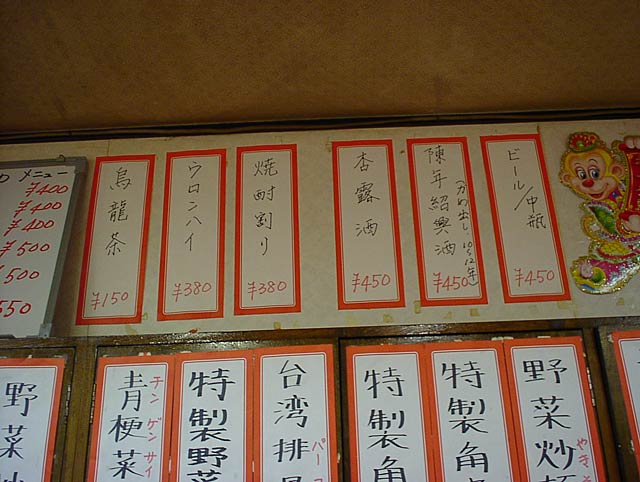 メニュー
¥400
¥400
¥400
¥500
¥500
550
烏龍茶
¥150
ウロンハイ
¥380
焼酎割り
¥380
杏露酒
¥450
陳年紹興酒
(かめ出し10〜12年)
¥450
ビール/中瓶
¥450
野菜
青梗菜
チンゲンサイ
特製野菜
台湾排
パーコ
特製角
特製角
野菜炒
やさ